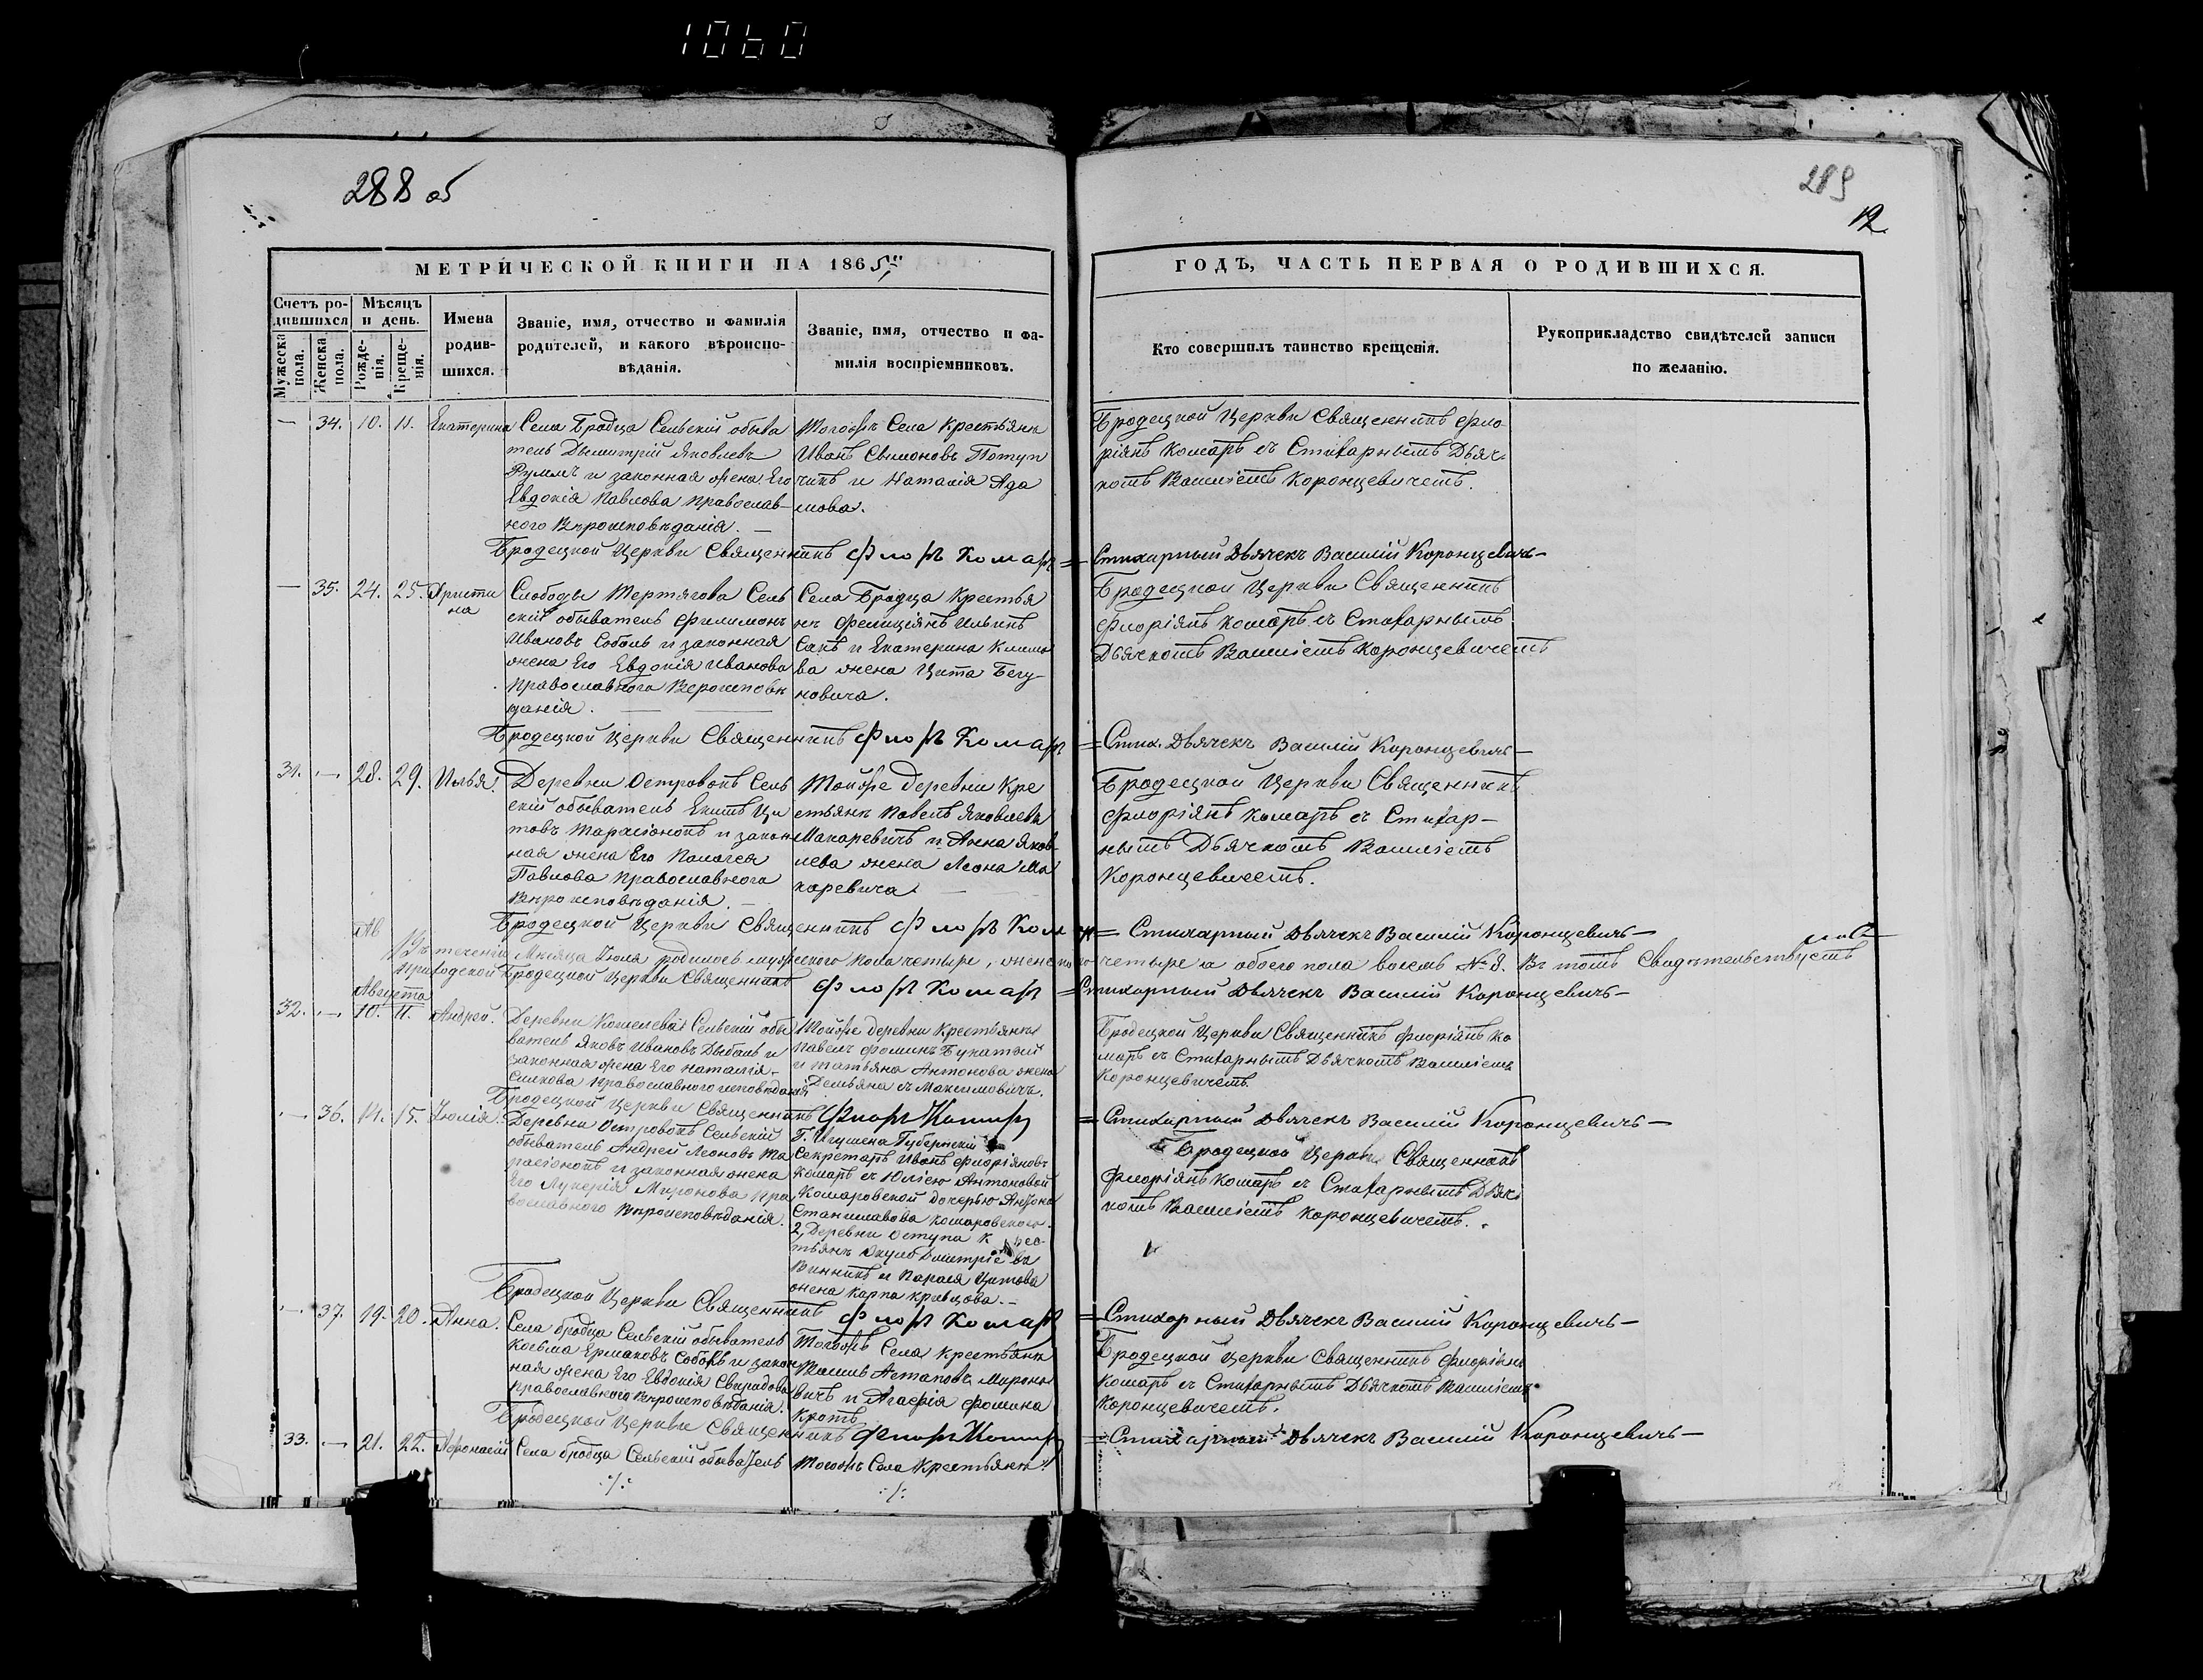 1060
288 об
289
12
МЕТРИЧЕСКОЙ КНИГИ НА 1865
ГОДЪ, ЧАСТЬ ПЕРВАЯ О РОДИВШИХСЯ.
Счетъ родившихся
Мужеска пола.
Женска пола.
Мѣсяцъ и день.
Рожденія.
Крещенія.
Имена родившихся.
Званіе, имя, отчество и фамилія
родителей, и какого вѣроиспо-
вѣданія.
Званіе, имя, отчество и фа-
милія воспріемниковъ.
Кто совершилъ таинство крещенія.
Рукоприкладство свидѣтелей записи
по желанію.
— 34. 10. 11. Екатерина
Села Бродца Сельскій обыва
тель Дымитрій Яковлевъ
и законная жена Его
Евдокія Павлова Православ-
ного Вѣроисповѣданія. —
Тогожъ Села Крестьянъ
Иванъ Сымоновъ Потуп
чикъ и Наталія Ада
мова.
Бродецкой Церкви Священникъ Фло
ріянъ Комаръ съ Стихарнымъ Дьяч-
комъ Василіемъ Коронцевичемъ.
Бродецкой Церкви Священникъ Флоръ Комаръ =
Стихарный Дьячекъ Василій Коронцевичъ —
— 35. 24. 25. Христи
на
Слободы Сель
скій обыватель Филимонъ
Ивановъ Соболь и законная
жена Его Евдокія Иванова
Православного Вероисповѣ
данія.
Села Бродца Крестья
нъ Фелиціянъ Ильинъ
Сакъ и Екатерина Климо
ва жена Тита Бегу-
новича.
Бродецкой Церкви Священникъ
Флоріянъ Комаръ съ Стихарнымъ
Дьячкомъ Василіемъ Коронцевичемъ
Бродецкой Церкви Священникъ Флоръ Комаръ
= Стих. Дьячекъ Василій Коронцевичъ —
31. — 28. 29. Илья.
Деревни Островокъ Сель
скій обыватель Екимъ Ци
товъ Тарасіонокъ и закон
ная жена Его Палагея
Павлова Православного
Вѣроисповѣданія. —
Тойже деревни Кре
стьянъ Павелъ Яковлевъ
Макаревичъ и Анна Яков-
лева жена Леона Ма
каревича
Бродецкой Церкви Священникъ
Флоріянъ Комаръ съ Стихар-
нымъ Дьячкомъ Василіемъ
Коронцевичемъ.
Бродецкой Церкви Священникъ Флоръ Комаръ
= Стихарный Дьячекъ Василій Коронцевичъ —
Ав
Въ теченіи Мѣсяца Іюля родилось мужеского пола четыре, женского четыре а обоего пола восемь № 8. Въ томъ Свидѣтельствуемъ
Приходской Бродецкой Церкви Священникъ Флоръ Комаръ = Стихарный Дьячекъ Василій Коронцевичъ —
Августа
32. — 10. 11. Андрей.
Деревни Кошелева Сельскій обы
ватель Яковъ Ивановъ Дыбаль и
законная жена Его Наталія
Православного исповѣданія
Тойже деревни Крестьянъ
Павелъ Фоминъ Букатый
и Татьяна Антонова жена
Демьяна Максимовичъ.
Бродецкой Церкви Священникъ Флоріянъ Ко
маръ съ Стихарнымъ Дьячкомъ Василіемъ
Коронцевичемъ.
Бродецкой Церкви Священникъ Флоръ Комаръ
= Стихарный Дьячекъ Василій Коронцевичъ —
— 36. 14. 15. Іюлія.
Деревни Островокъ Сельскій
обыватель Андрей Леоновъ Та
расіонокъ и законная жена
Его Лукерія Миронова Пра
вославного Вѣроисповѣданія.
Г. Игумена Губернскій
Секретарь Иванъ Флоріяновъ
Комаръ съ Юліею Антоновой
Комаровской дочерью Антона
Станиславова Комаровского.
2, Деревни Оступа Крес
тьянъ Дмитріевъ
Винникъ и Парася Цитова
жена Карпа Кравцова. —
Бродецкой Церкви Священникъ
Флоріянъ Комаръ съ Стихарнымъ Дьяч
комъ Василіемъ Коронцевичемъ.
Бродецкой Церкви Священникъ Флоръ Комаръ
= Стихарный Дьячекъ Василій Коронцевичъ —
— 37. 19. 20. Анна.
Села Бродца Сельскій обыватель
Козьма Ермаковъ Соболь и закон
ная жена Его Евдокія Свиридова
Православного Вѣроисповѣданія.
Тогожъ Села Крестьянъ
Василь Астаповъ Мироно
вичъ и Агафія Фомина
Кротъ
Бродецкой Церкви Священникъ Флоріянъ
Комаръ съ Стихарнымъ Дьячкомъ Василіемъ
Коронцевичемъ.
Бродецкой Церкви Священникъ Флоръ Комаръ
= Стихарный Дьячекъ Василій Коронцевичъ —
33. — 21. 22. Афонасій
Села Бродца Сельскій обыватель
Тогожъ Села Крестьянъ